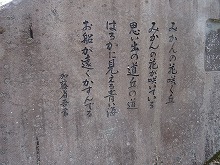 みかんの花咲く丘
みかんの花が咲いている
思い出の道丘の道
はるかに見える青い海
お船が遠くかすんでる
加藤省吾